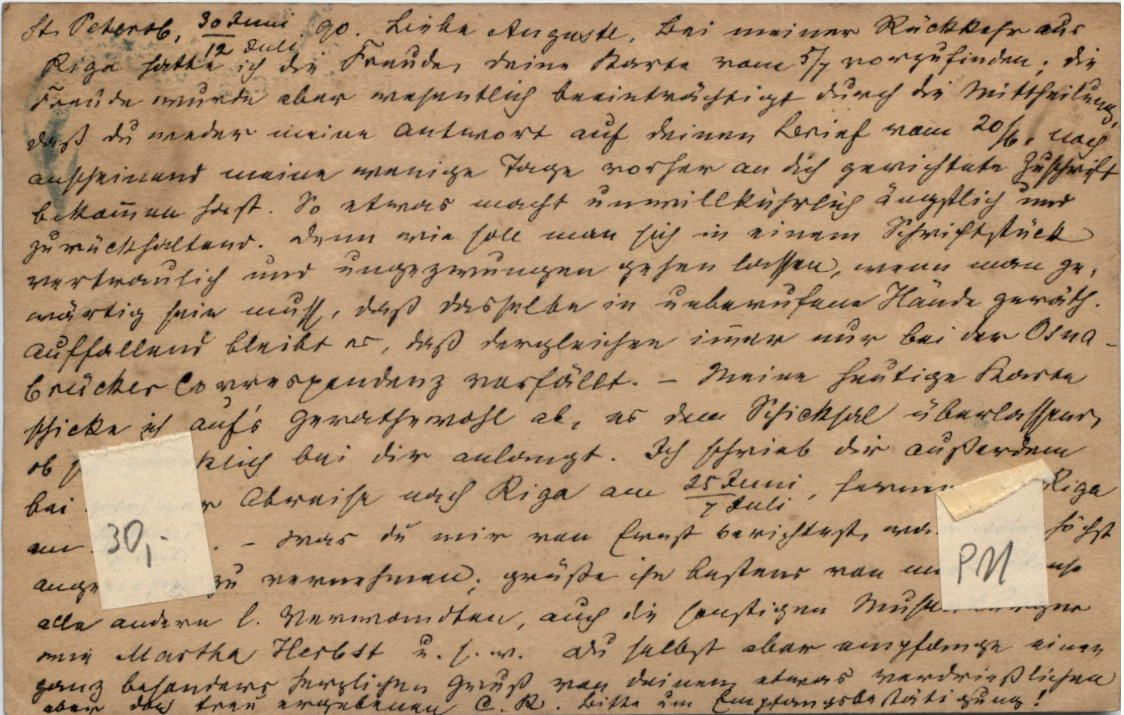 St. Petersb, 30 Juni / 12 Juli 90. Liebe Auguste. Bei meiner Rückkehr aus
Riga hatte ich die Freude, deine Karte vom 5/7 vorzufinden; die
Freude wurde aber wesentlich beeinträchtigt durch die Mittheilung,
daß du weder meine Antwort auf deinen Brief vom 20/6, noch
anscheinend meine wenige Tage vorher an dich gerichtete Zuschrift
bekom̄en hast. So etwas macht unwillkührlich ängstlich und
zurückhaltend. Denn wie soll man sich in einem Schriftstück
vertraulich und ungezwungen gehen lassen, wenn man ge-
wärtig sein muss, daß dasselbe in unberufene Hände geräth.
Auffallend bleibt es, daß dergleichen im̄er nur bei der Osna-
brücker Correspondenz vorfällt. – Meine heutige Karte
schicke ich auf's Gerathewohl ab, es dem Schicksal überlassend,
ob bei dir anlangt. Ich schrieb dir außerdem
bei Abreise nach Riga am 25 Juni / 7 Juli, ferner Riga
am 30,- – Was du mir von Ernst berichtest, höchst
zu vernehmen; grüße ihn bestens von PM
alle andern l. Verwandten, auch die sonstigen
wie Martha Herbst u. s. w. Du selbst aber empfange einen
ganz besonders herzlichen Gruß von deinem etwas verdrießlichen
aber doch treu ergebenen C. R. Bitte um Empfangsbestätigung!